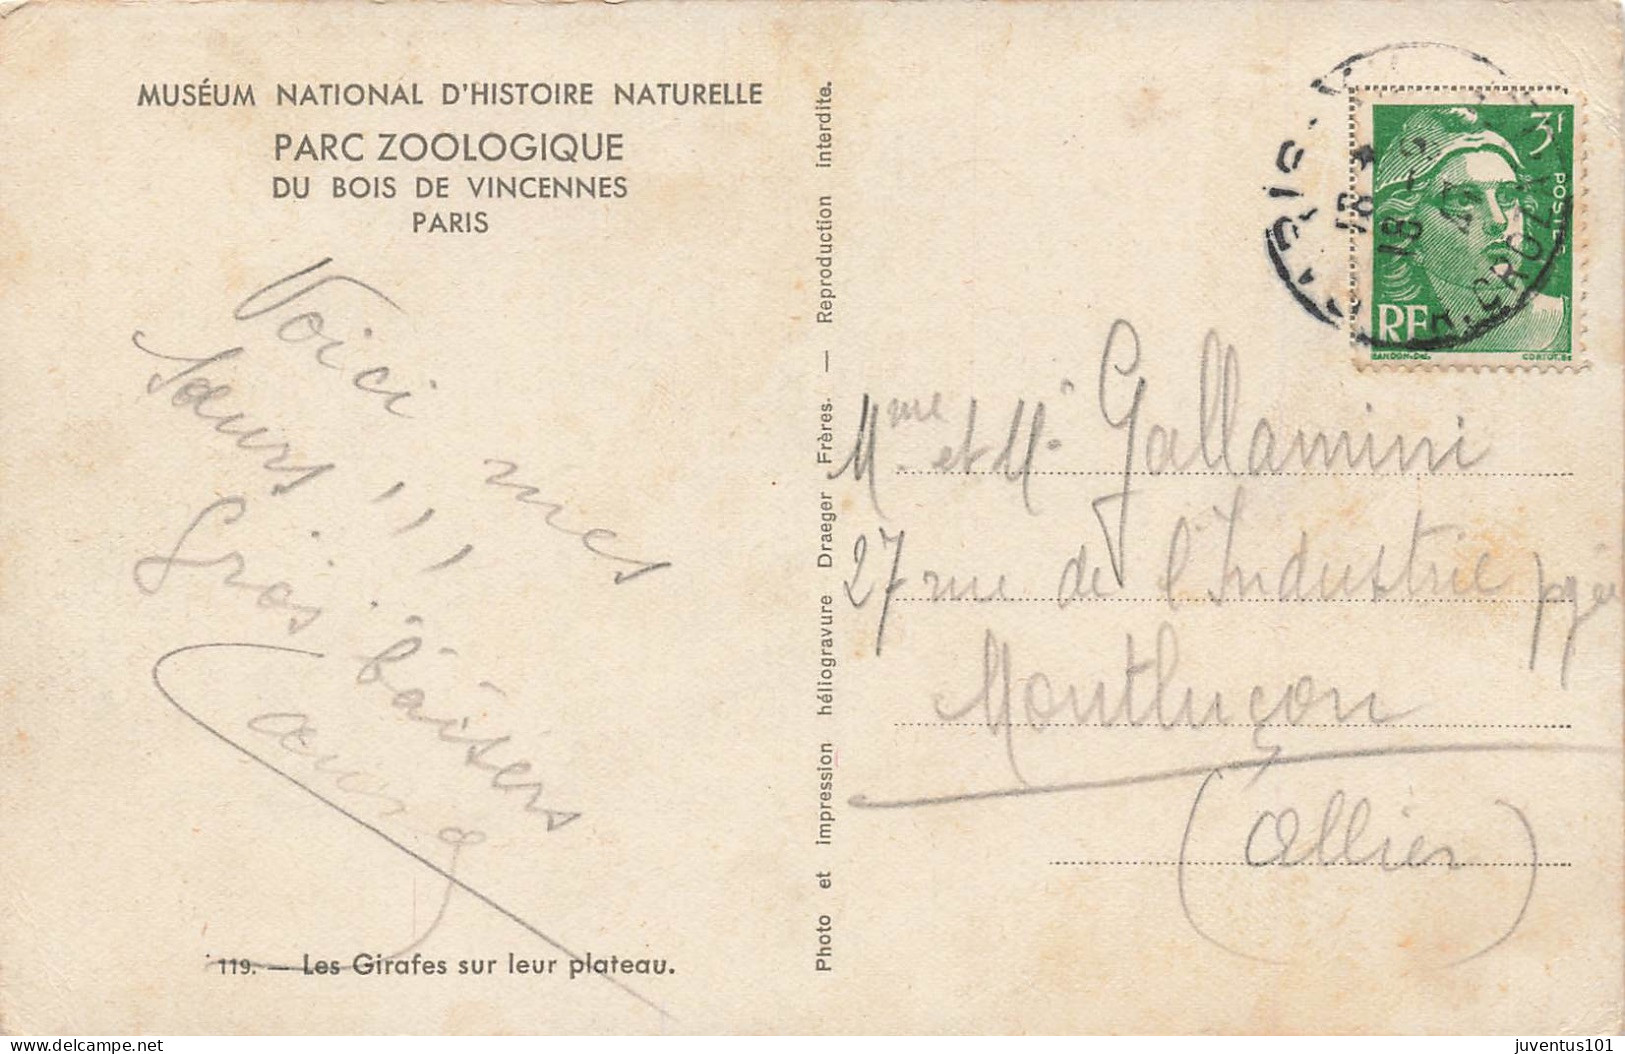 MUSÉUM NATIONAL D'HISTOIRE NATURELLE
PARC ZOOLOGIQUE
DU BOIS DE VINCENNES
PARIS
Voici mes
sœurs ,,,
Gros baisers
119. — Les Girafes sur leur plateau.
Photo et impression héliogravure Draeger Frères. — Reproduction interdite.
3F
POSTES
RF
GANDON.DEL.
CORTOT.SC
18
18 - 9
47
CROZA
Mme et Mr Gallamini
27 rue de l'Industrie
Montluçon
(Allier)
delcampe.net
juventus101